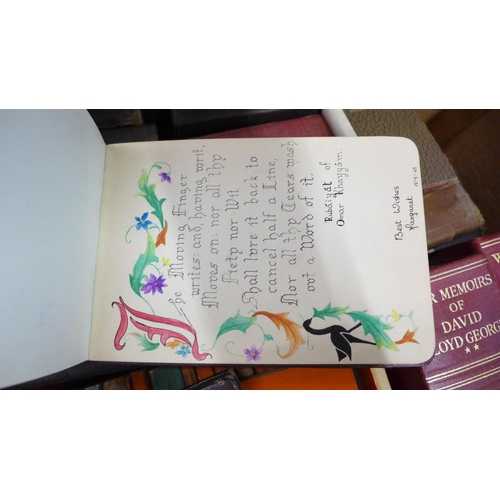 The Moving Finger
writes: and, having writ,
Moves on: nor all thy
Piety nor Wit
Shall lure it back to
cancel half a Line,
Nor all thy Tears wash
out a Word of it.
Rubáiyát of
Omar Khayyám.
Best Wishes
Margaret
R MEMOIRS
OF
DAVID
LOYD GEORGE